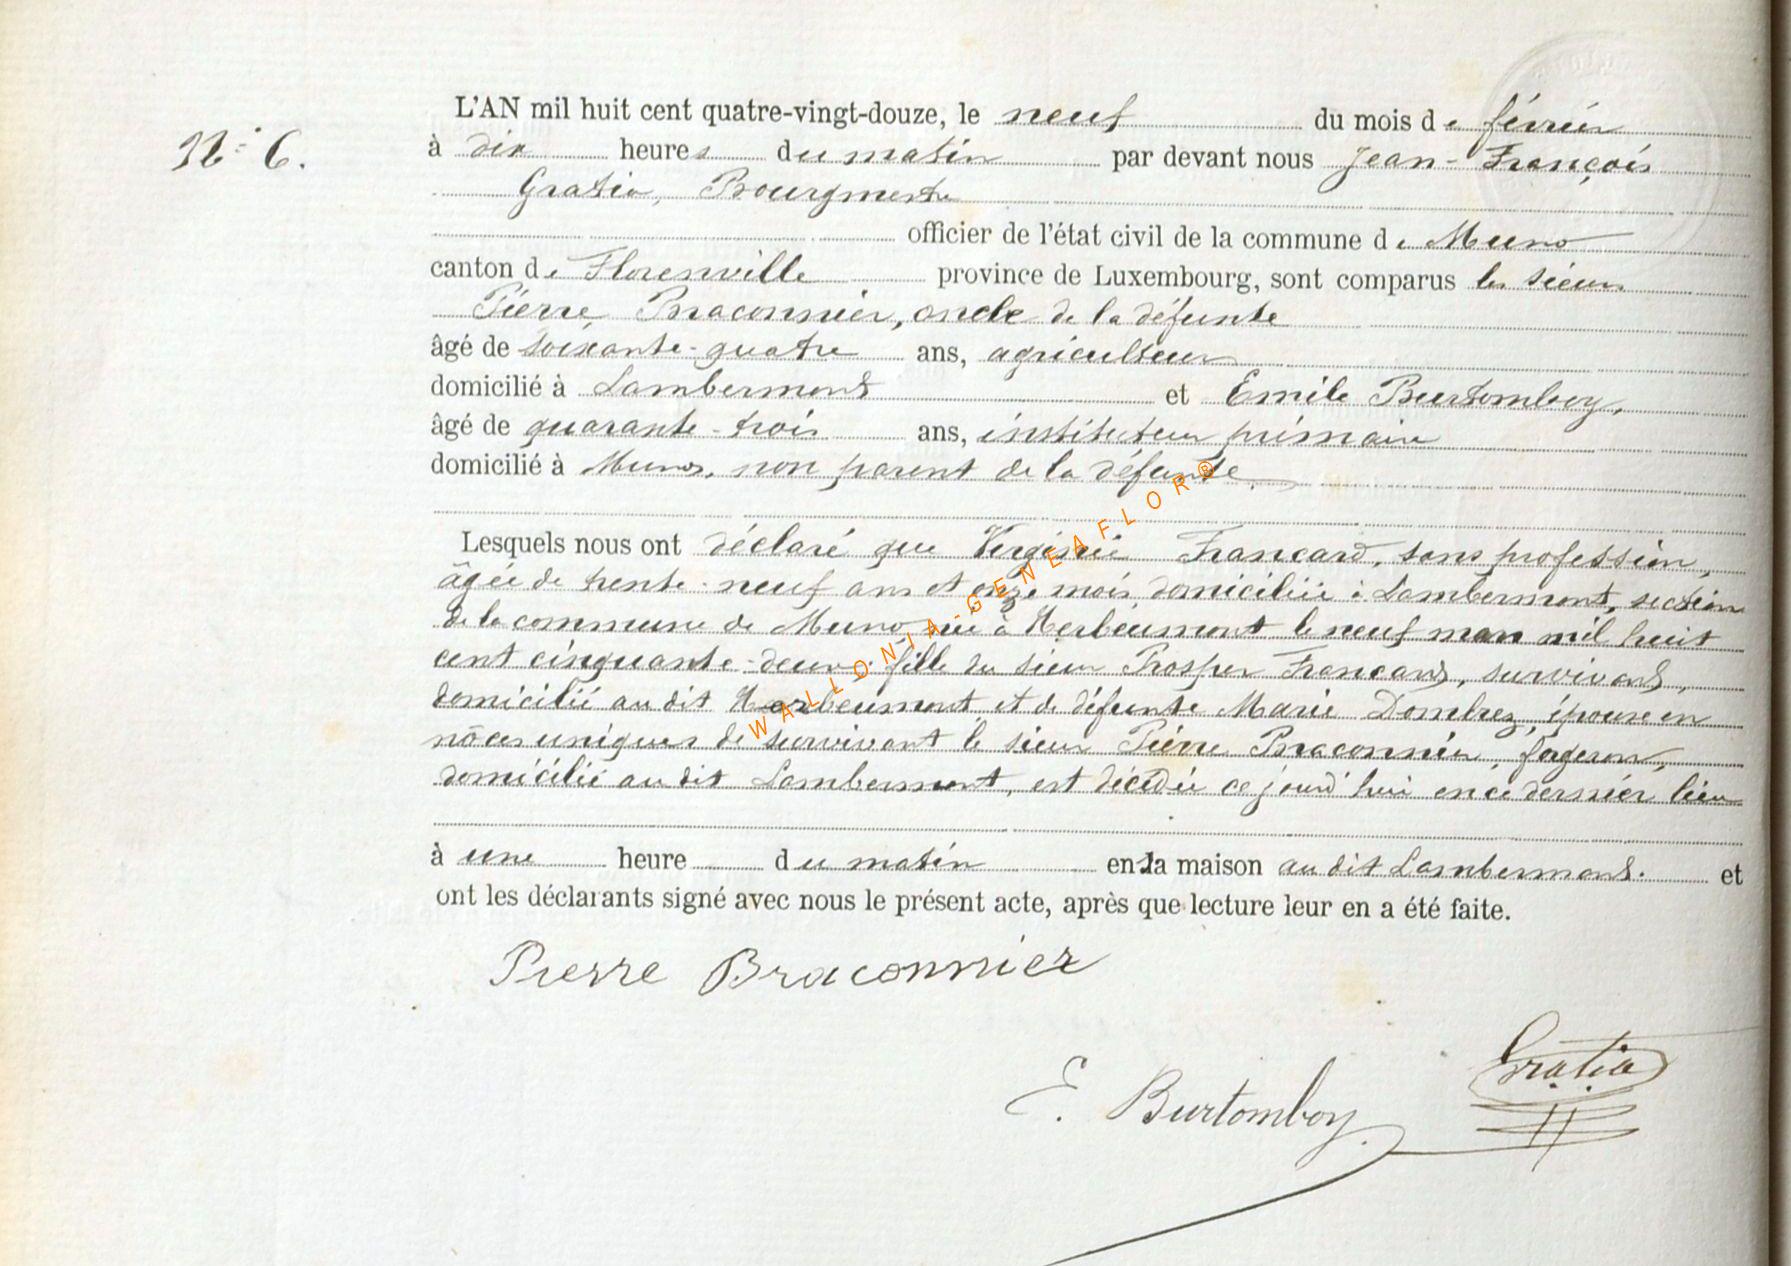 N° 6.
L'AN mil huit cent quatre-vingt-douze, le neuf du mois de février
à dix heures du matin par devant nous Jean-François
Gratia, Bourgmestre
officier de l'état civil de la commune de Muno
canton de Florenville province de Luxembourg, sont comparus les sieurs
Pierre Braconnier, oncle de la défunte
âgé de soixante-quatre ans, agriculteur
domicilié à Lambermont et Emile Burtomboy,
âgé de quarante-trois ans, instituteur primaire
domicilié à Muno, non parent de la défunte
Lesquels nous ont déclaré que Virginie Francard, sans profession,
âgée de trente-neuf ans et onze mois, domiciliée à Lambermont, section
de la commune de Muno, née à Herbeumont le neuf mars mil huit
cent cinquante-deux, fille du sieur Prosper Francard, survivant,
domicilié au dit Herbeumont et de défunte Marie Dombrez, épouse en
nôces uniques de survivant le sieur Pierre Braconnier, forgeron,
domicilié au dit Lambermont, est décédée ce jourd'hui en ce dernier lieu
à une heure du matin en sa maison au dit Lambermont. et
ont les déclarants signé avec nous le présent acte, après que lecture leur en a été faite.
Pierre Braconnier
Gratia
E. Burtomboy
WALLONIA-GENEAFLOR®